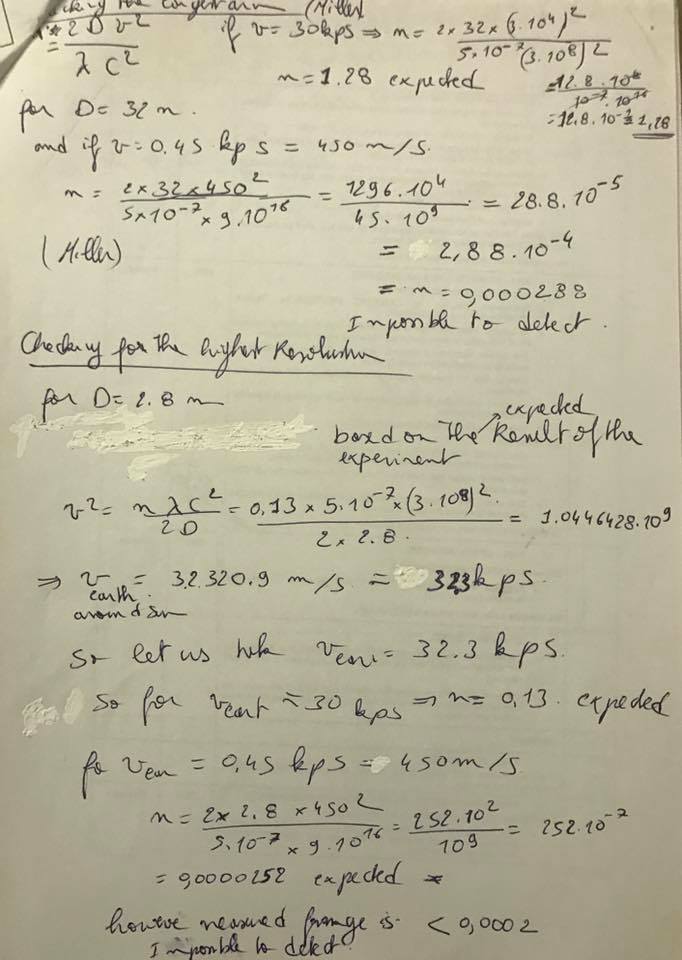 Checking the longest arm (Miller)
n = 2 D v² / λ c² if v = 30 kps ⇒ n = 2 × 32 × (3.10⁴)² / 5.10⁻⁷ (3.10⁸)²
n = 1.28 expected
for D = 32 m.
= 12.8.10⁸ / 10⁻⁷.10¹⁶
= 12,8.10⁻¹ = 1,28
and if v = 0.45 kps = 450 m/s.
n = 2 × 32 × 450² / 5×10⁻⁷ × 9.10¹⁶ = 1296.10⁴ / 45.10⁹ = 28.8.10⁻⁵
(Miller) = 2,88.10⁻⁴
= n = 0,000288
Imposible to detect.
Checking for the highest Resolution
for D = 2.8 m
based on the expected Result of the
experiment
v² = n λ c² / 2D = 0,13 × 5.10⁻⁷ × (3.10⁸)² / 2 × 2.8. = 1.0446428.10⁹
⇒ v earth around sun = 32.320.9 m/s = 32,3 kps.
So let us take v = 32.3 kps.
So for v ≈ 30 kps ⇒ n = 0,13. expected
for v = 0,45 kps = 450 m/s
n = 2 × 2.8 × 450² / 5.10⁻⁷ × 9.10¹⁶ = 252.10² / 10⁹ = 252.10⁻⁷
= 0,0000252 expected
however measured frange is < 0,0002
Imposible to detect.